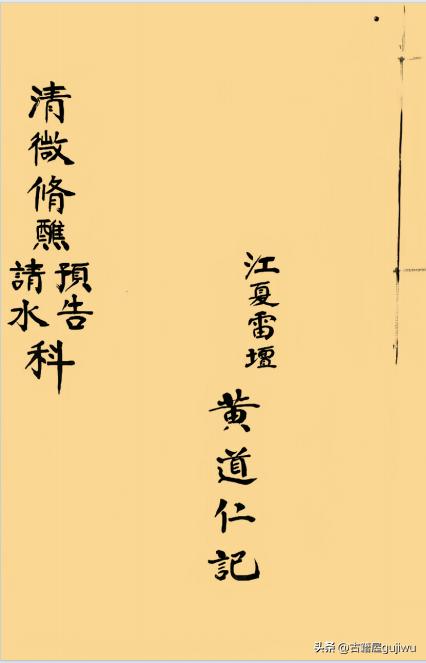 江夏雷壇
黄道仁記
清微脩醮
預告
請水
科
头条 @古籍屋gujiwu